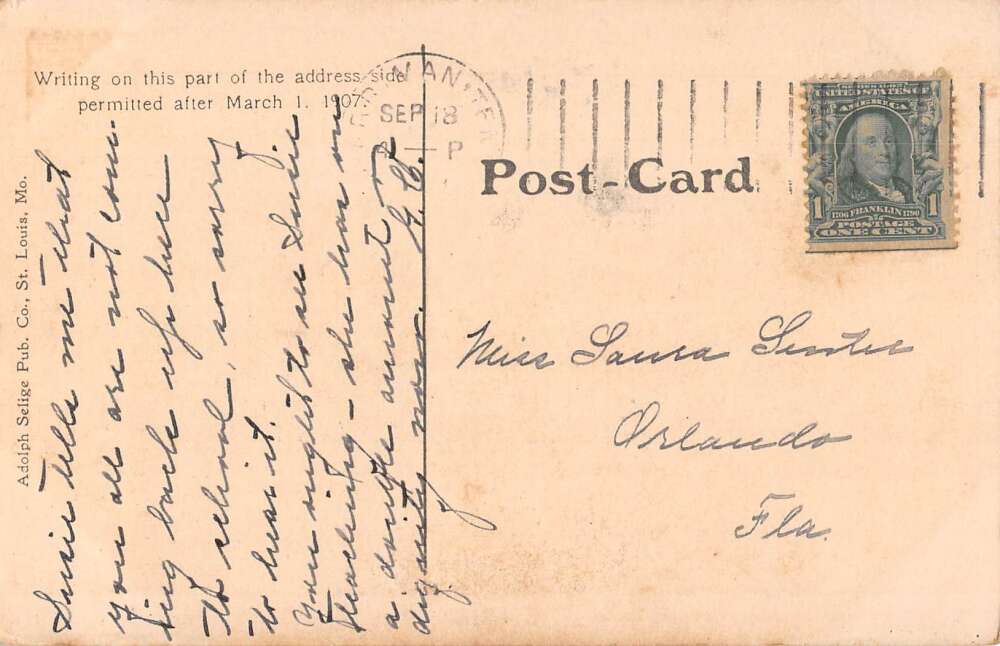 Writing on this part of the address side
permitted after March 1, 1907.
SEP 18
P
Post-Card
UNITED STATES OF
AMERICA
1706 FRANKLIN 1790
POSTAGE
1 ONE CENT 1
Adolph Selige Pub. Co., St. Louis, Mo.
Susie tells me that
you all are not com-
ing back up here
to school, so sorry
to hear it.
You ought to see Susie
teaching - she has on
a double amount of
dignity now.
Miss Laura
Orlando
Fla.